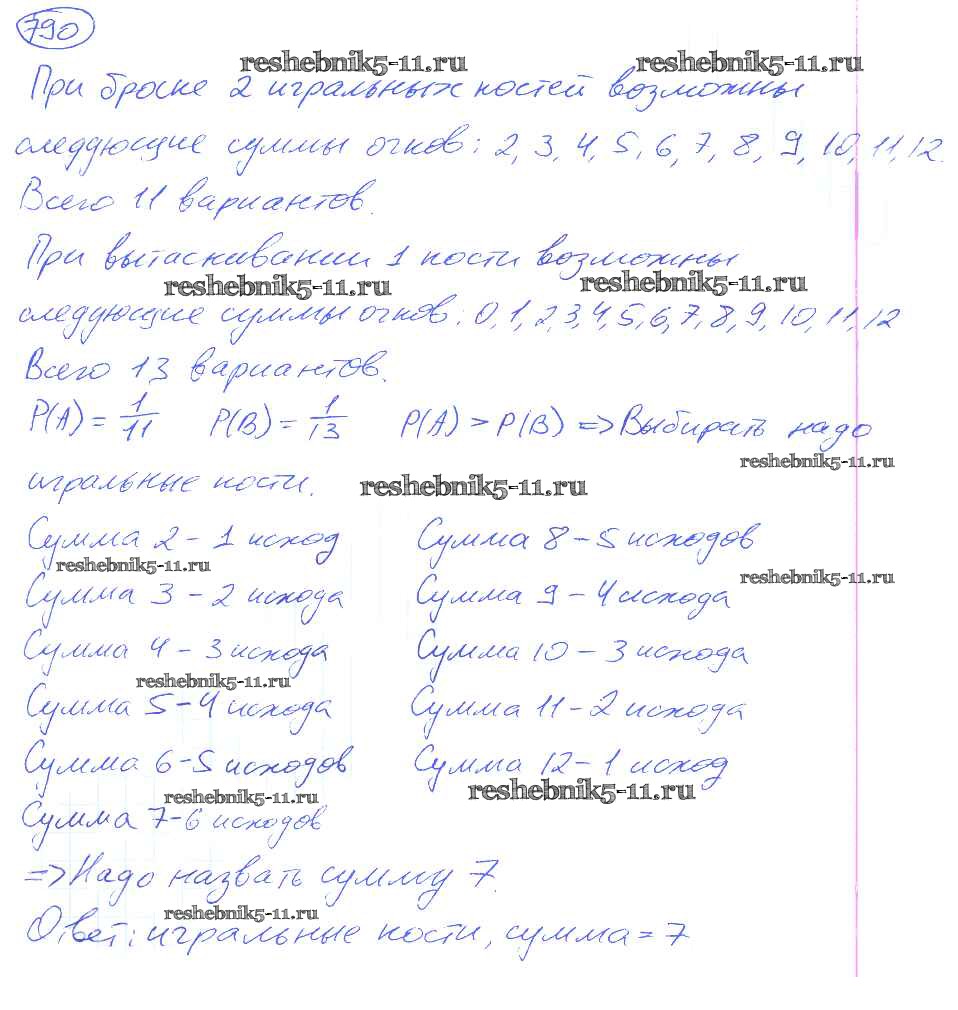 790
reshebnik5-11.ru reshebnik5-11.ru
При броске 2 игральных костей возможны
следующие суммы очков: 2, 3, 4, 5, 6, 7, 8, 9, 10, 11, 12.
Всего 11 вариантов.
При вытаскивании 1 кости возможны
reshebnik5-11.ru reshebnik5-11.ru
следующие суммы очков: 0, 1, 2, 3, 4, 5, 6, 7, 8, 9, 10, 11, 12
Всего 13 вариантов.
P(A) = 1/11 P(B) = 1/13 P(A) > P(B) => Выбирать надо
reshebnik5-11.ru
игральные кости. reshebnik5-11.ru
Сумма 2 - 1 исход Сумма 8 - 5 исходов
reshebnik5-11.ru reshebnik5-11.ru
Сумма 3 - 2 исхода Сумма 9 - 4 исхода
Сумма 4 - 3 исхода Сумма 10 - 3 исхода
reshebnik5-11.ru
Сумма 5 - 4 исхода Сумма 11 - 2 исхода
Сумма 6 - 5 исходов Сумма 12 - 1 исход
reshebnik5-11.ru reshebnik5-11.ru
Сумма 7 - 6 исходов
=> Надо назвать сумму 7.
reshebnik5-11.ru
Ответ: игральные кости, сумма = 7